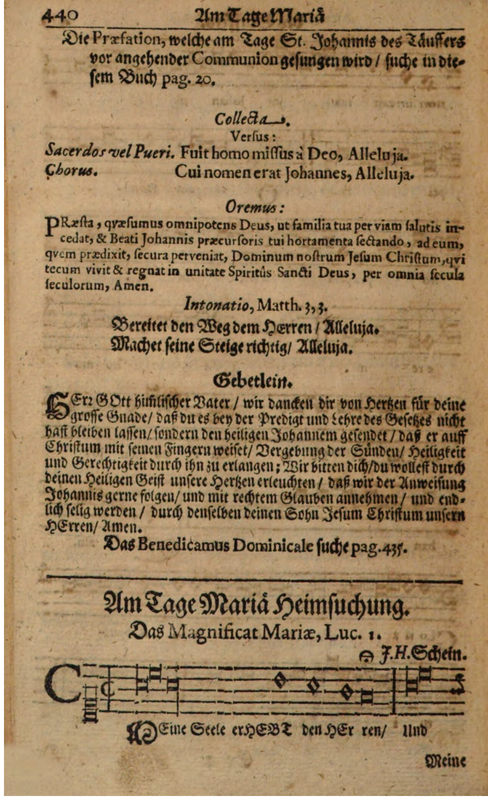 440 Am Tage Mariä
Die Præfation, welche am Tage St. Johannis des Täuffers
vor angehender Communion gesungen wird / suche in die-
sem Buch pag. 20.
Collecta.
Versus:
Sacerdos vel Pueri. Fuit homo missus à Deo, Alleluja.
Chorus. Cui nomen erat Johannes, Alleluja.
Oremus:
PRæsta, qvæsumus omnipotens Deus, ut familia tua per viam salutis in-
cedat, & Beati Johannis præcursoris tui hortamenta sectando, ad eum,
qvem prædixit, secura perveniat, Dominum nostrum Jesum Christum, qvi
tecum vivit & regnat in unitate Spiritûs Sancti Deus, per omnia secula
seculorum, Amen.
Intonatio, Matth. 3, 3.
Bereitet den Weg dem HErren / Alleluja.
Machet seine Steige richtig / Alleluja.
Gebetlein.
HErr GOtt himlischer Vater / wir dancken dir von Hertzen für deine
grosse Gnade / daß du es bey der Predigt und Lehre des Gesetzes nicht
hast bleiben lassen / sondern den heiligen Johannem gesendet / daß er auff
Christum mit seinen Fingern weiset / Vergebung der Sünden / Heiligkeit
und Gerechtigkeit durch ihn zu erlangen; Wir bitten dich / du wollest durch
deinen Heiligen Geist unsere Hertzen erleuchten / daß wir der Anweisung
Johannis gerne folgen / und mit rechtem Glauben annehmen / und end-
lich selig werden / durch denselben deinen Sohn Jesum Christum unsern
HErren / Amen.
Das Benedicamus Dominicale suche pag. 435.
Am Tage Mariä Heimsuchung.
Das Magnificat Mariæ, Luc. 1.
J. H. Schein.
MEine Seele erHEBT den HEr ren / Und
Meine